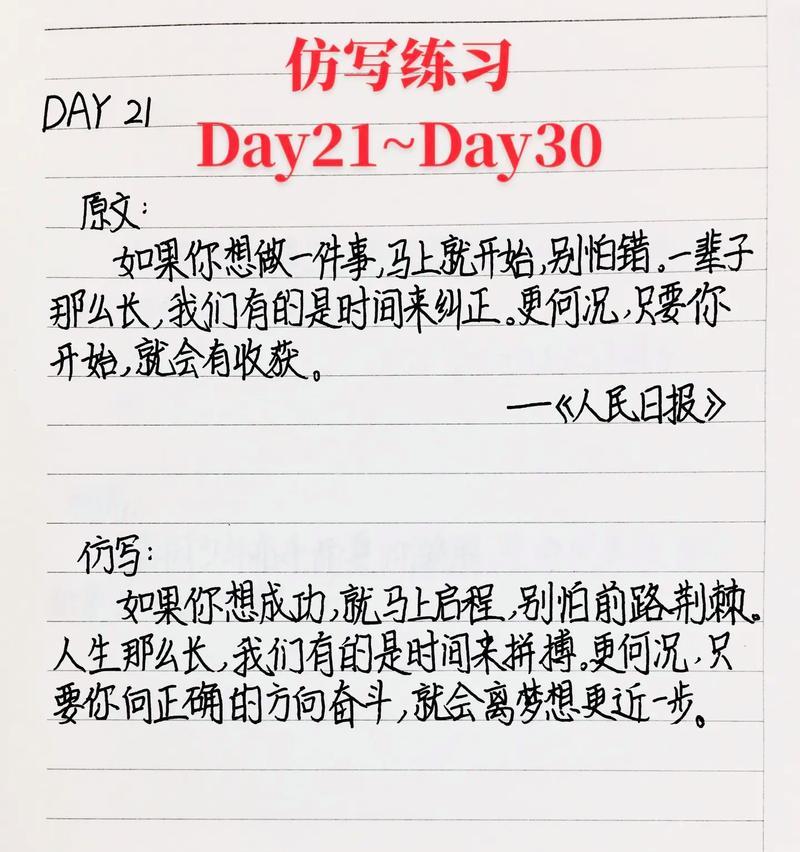 仿写练习
Day21~Day30
DAY 21
原文：
如果你想做一件事，马上就开始，别怕错。一辈子
那么长，我们有的是时间来纠正。更何况，只要你
开始，就会有收获。
—《人民日报》
仿写：
如果你想成功，就马上启程，别怕前路荆棘。
人生那么长，我们有的是时间来拼搏。更何况，只
要你向正确的方向奋斗，就会离梦想更近一步。